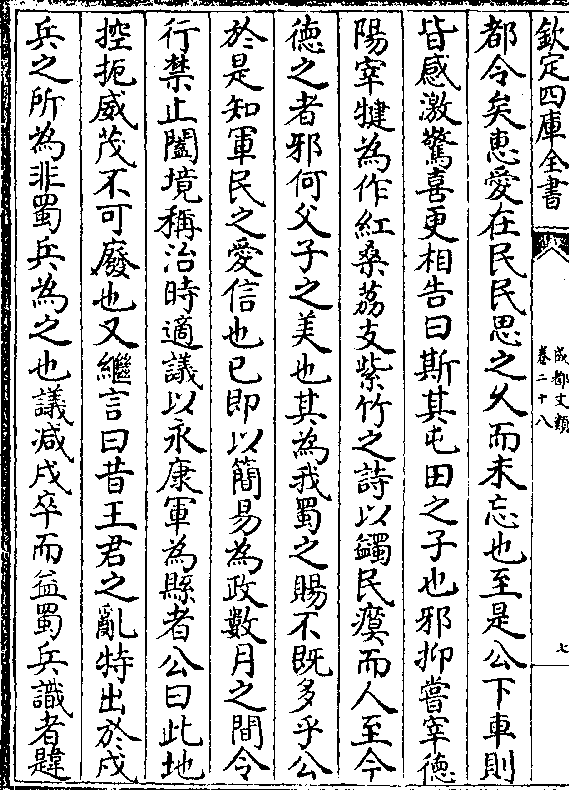 欽定四庫全書
成都文類
卷二十八
七
都令矣惠愛在民民思之久而未忘也至是公下車則
皆感激驚喜更相告曰斯其屯田之子也邪抑嘗宰德
陽宰犍為作紅桑荔支紫竹之詩以蠲民瘼而人至今
德之者邪何父子之美也其為我蜀之賜不既多乎公
於是知軍民之愛信也已即以簡易為政數月之間令
行禁止闔境稱治時適議以永康軍為縣者公曰此地
控扼威茂不可廢也又繼言曰昔王君之亂特出於戍
兵之所為非蜀兵為之也議減戍卒而益蜀兵識者韙